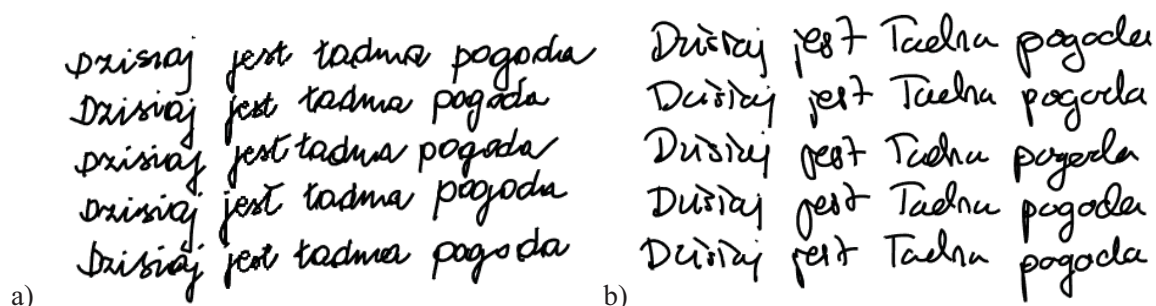 Dzisiaj jest ładna pogoda
Dzisiaj jest ładna pogoda
Dzisiaj jest ładna pogoda
Dzisiaj jest ładna pogoda
Dzisiaj jest ładna pogoda
a)
Dzisiaj jest ładna pogoda
Dzisiaj jest ładna pogoda
Dzisiaj jest ładna pogoda
Dzisiaj jest ładna pogoda
Dzisiaj jest ładna pogoda
b)